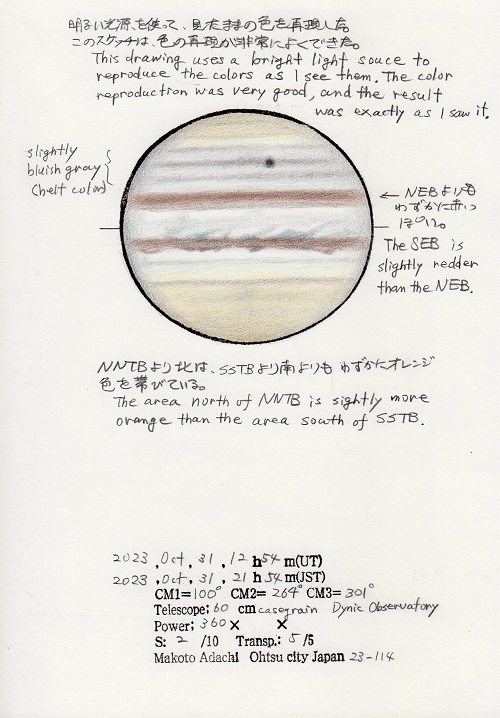 明るい光源を使って、見たままの色を再現した。
このスケッチは、色の再現が非常によくできた。
This drawing uses a bright light souce to
reproduce the colors as I see them. The color
reproduction was very good, and the result
was exactly as I saw it.
slightly
bluish gray
(belt color)
← NEBよりも
わずかに赤っ
ぽい。
The SEB is
slightly redder
than the NEB.
NNTBより北は、SSTBより南よりもわずかにオレンジ
色を帯びている。
The area north of NNTB is sightly more
orange than the area south of SSTB.
2023 , Oct , 31 , 12 h 54 m(UT)
2023 , Oct , 31 , 21 h 54 m(JST)
CM1= 100° CM2= 264° CM3= 301°
Telescope; 60 cm casegrain Dynic Observatory
Power; 360 × ×
S: 2 /10 Transp.: 5 /5
Makoto Adachi Ohtsu city Japan 23-114